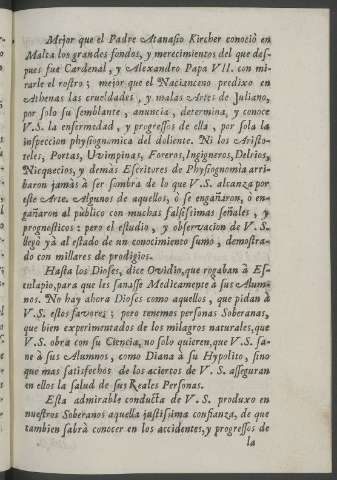 Mejor que el Padre Atanasio Kircher conociò en
Malta los grandes fondos, y merecimientos del que des-
pues fue Cardenal, y Alexandro Papa VII. con mi-
rarle el rostro; mejor que el Nacianceno predixo en
Athenas las crueldades, y malas Artes de Juliano,
por solo su semblante, anuncia, determina, y conoce
V.S. la enfermedad, y progressos de ella, por sola la
inspeccion physiognomica del doliente. Ni los Aristo-
teles, Portas, Uvimpinas, Foreros, Ingigneros, Delrios,
Nicquecios, y demàs Escritores de Physiognomia arri-
baron jamàs à ser sombra de lo que V.S. alcanza por
este Arte. Algunos de aquellos, ò se engañaron, ò en-
gañaron al público con muchas falsissimas señales, y
prognosticos: pero el estudio, y observacion de V.S.
llegò yà al estado de un conocimiento sumo, demostra-
do con millares de prodigios.
Hasta los Dioses, dice Ovidio, que rogaban à Es-
culapio, para que les sanasse Medicamente à sus Alum-
nos. No hay ahora Dioses como aquellos, que pidan à
V.S. estos favores; pero tenemos personas Soberanas,
que bien experimentados de los milagros naturales, que
V.S. obra con su Ciencia, no solo quieren, que V.S. sa-
ne à sus Alumnos, como Diana à su Hypolito, sino
que mas satisfechos de los aciertos de V.S. asseguran
en ellos la salud de sus Reales Personas.
Esta admirable conducta de V.S. produxo en
nuestros Soberanos aquella justisima confianza, de que
tambien sabrà conocer en los accidentes, y progressos de
la